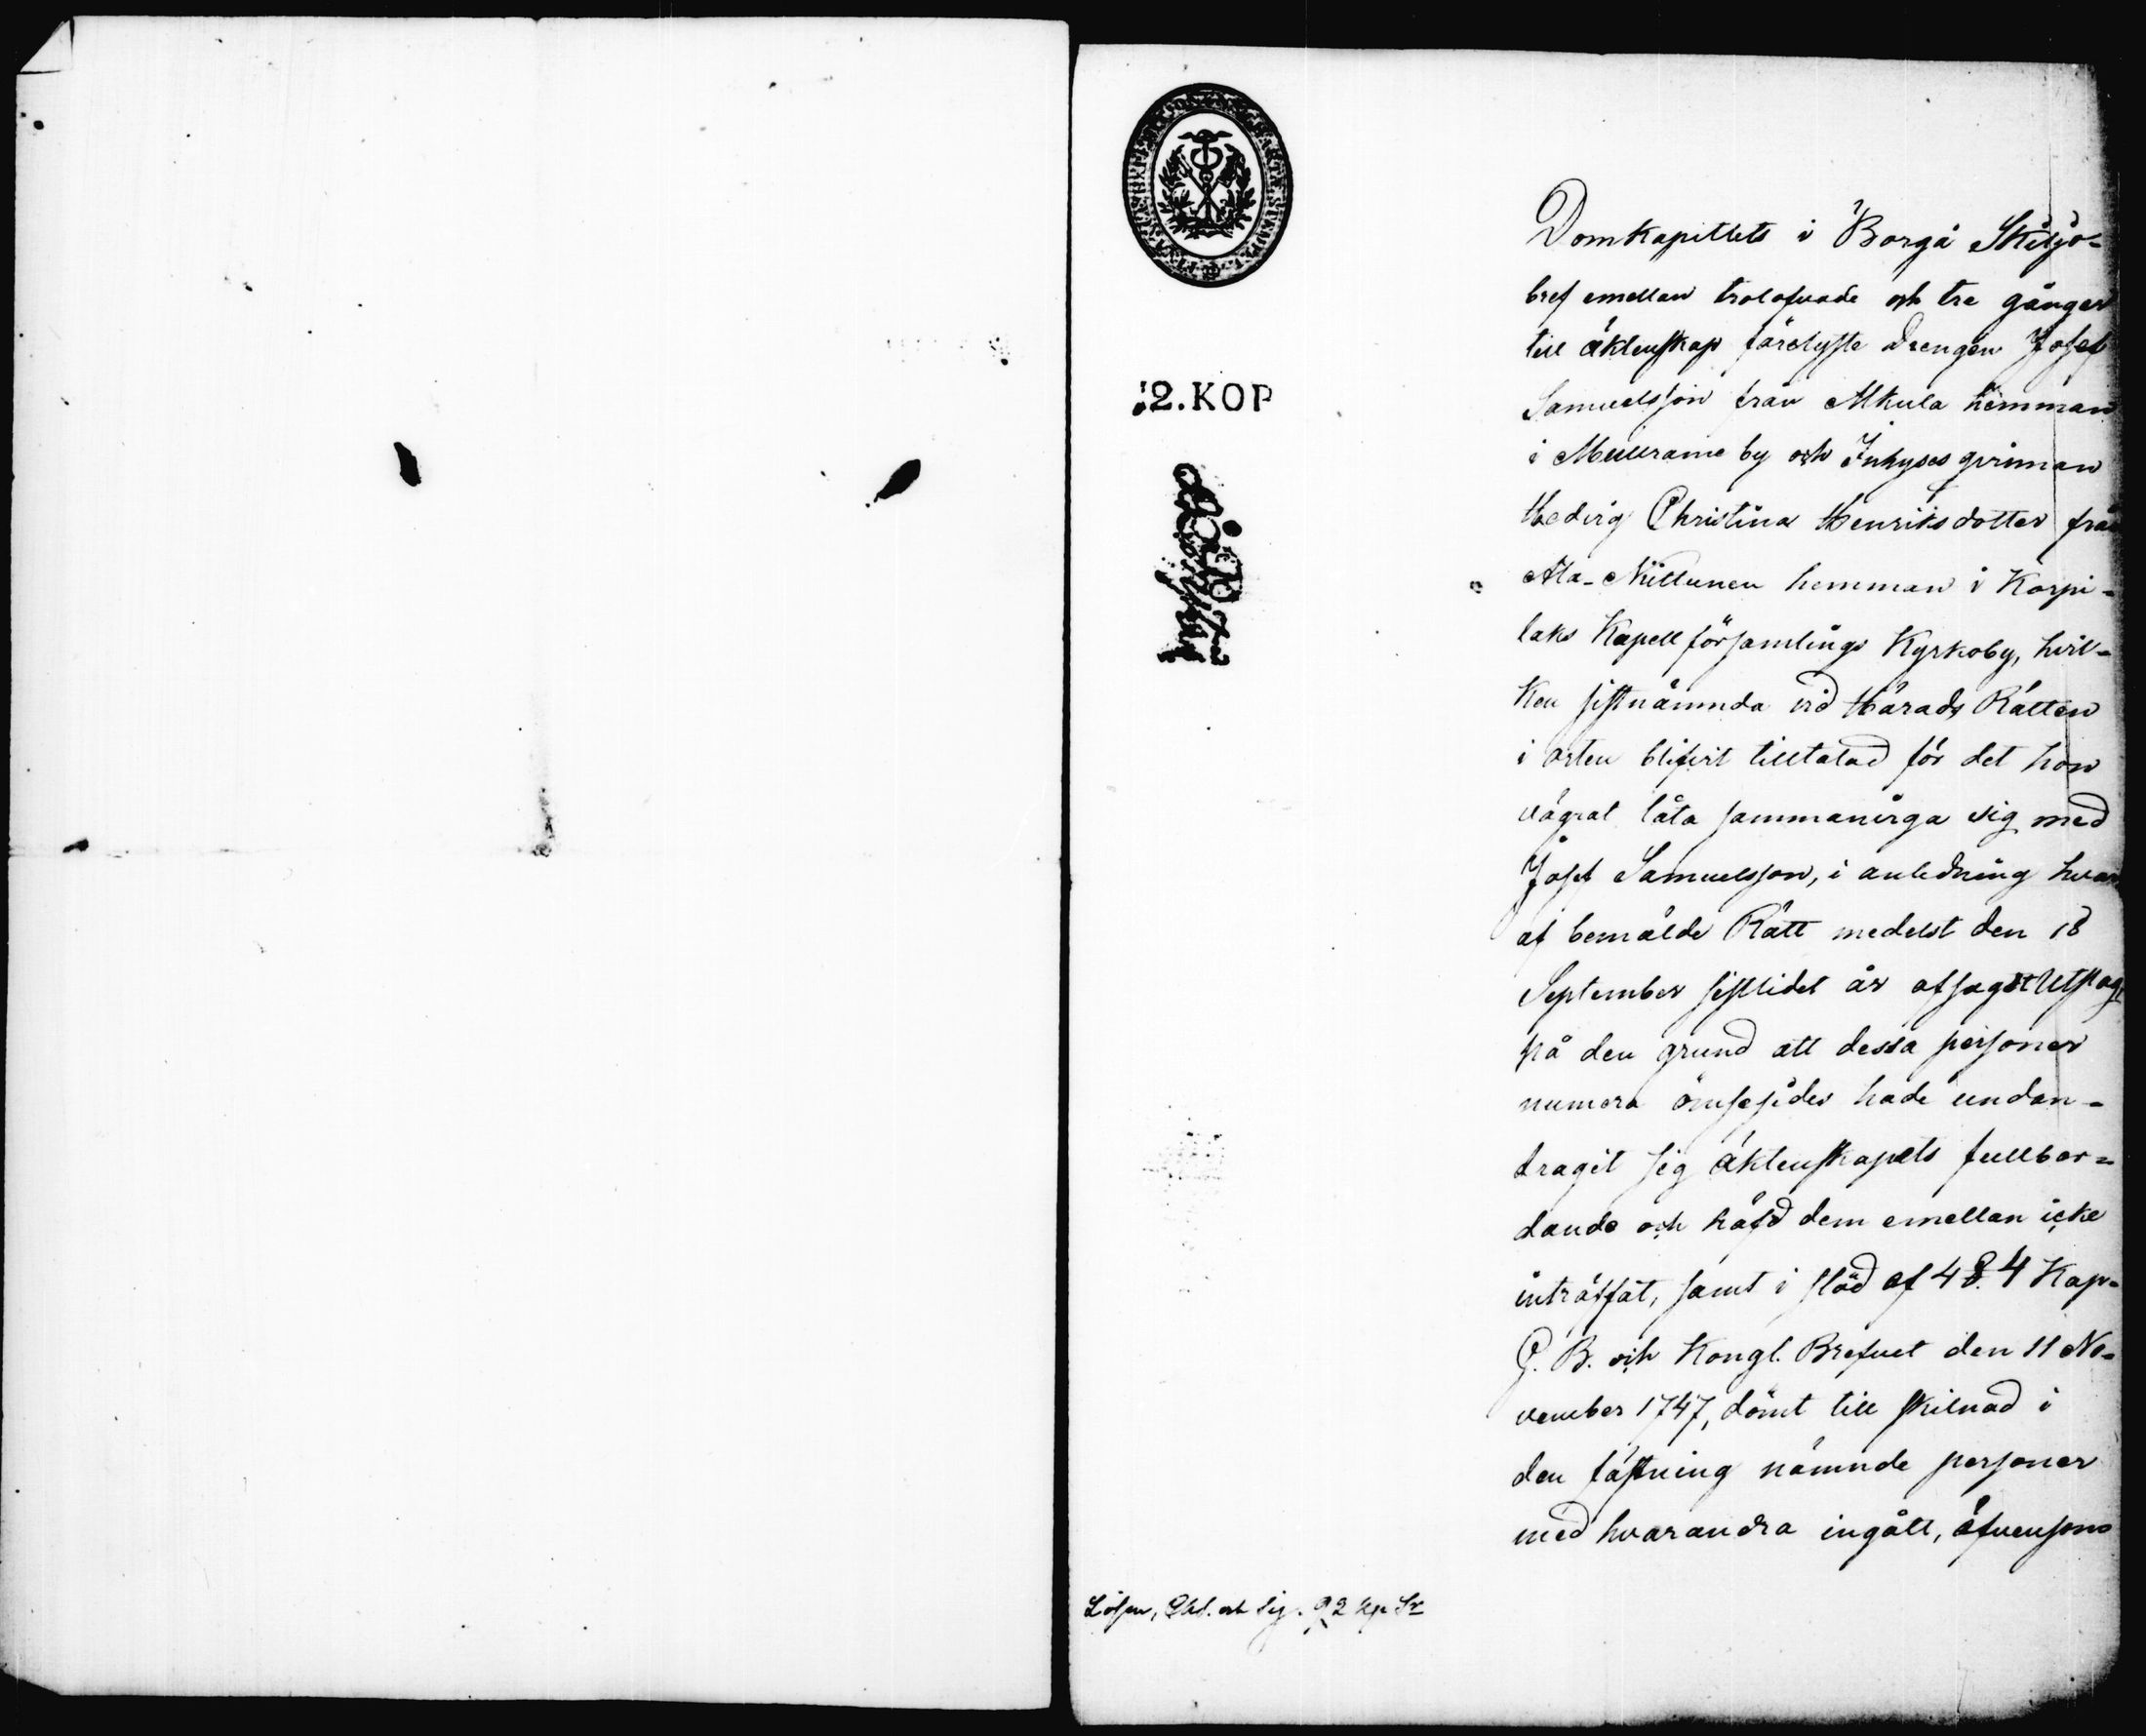 12.KOP
Domkapitlets i Borgå Skiljo-
bref emellan trolofvade och tre gånger
till äktenskap förelyste Drengen Josef
Samuelsson från Alkula hemman
i Muurame by och Inhyses qvinnan
Hedvig Christina Henriksdotter från
Ala-Nittunen hemman i Korpi-
laks Kapellförsamlings Kyrkoby, hvil-
ken sistnämnda vid Härads Rätten
i orten blifvit tilltalad för det hon
vägrat låta sammanviga sig med
Josef Samuelsson, i anledning hvar
af bemälde Rätt medelst den 18
September sistlidet år afsagdt Utslag
på den grund att dessa personer
numera ömsesides hade undan-
dragit sig äktenskapets fullbor-
dande och häfd dem emellan icke
inträffat, samt i stöd af 4 §. 4 Kap.
G. B. och Kongl. Brefvet den 11 No-
vember 1747, dömt till skilnad i
den fästning nämnde personer
med hvarandra ingått, äfvensom
Lösen, Chs. och Sig. 92 kp Sr